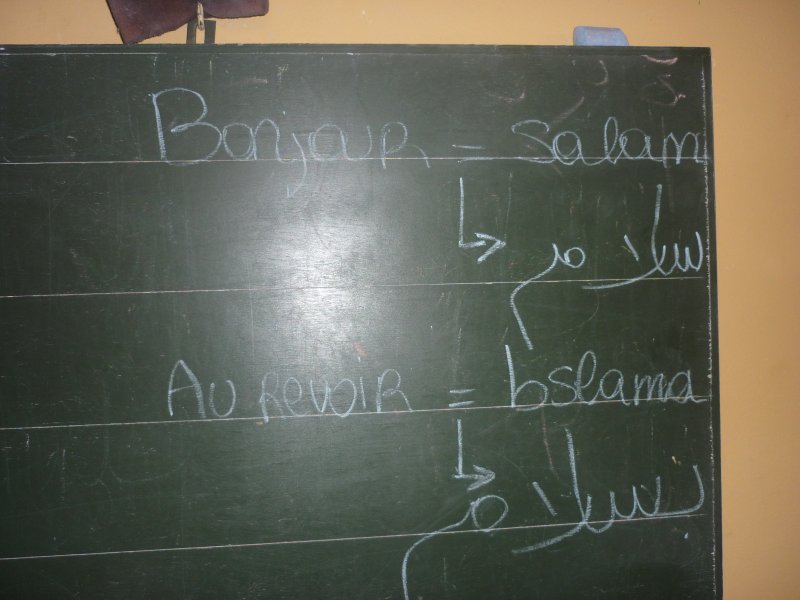 Bonjour = Salam
↳ سلام
Au revoir = bslama
↳ بسلام